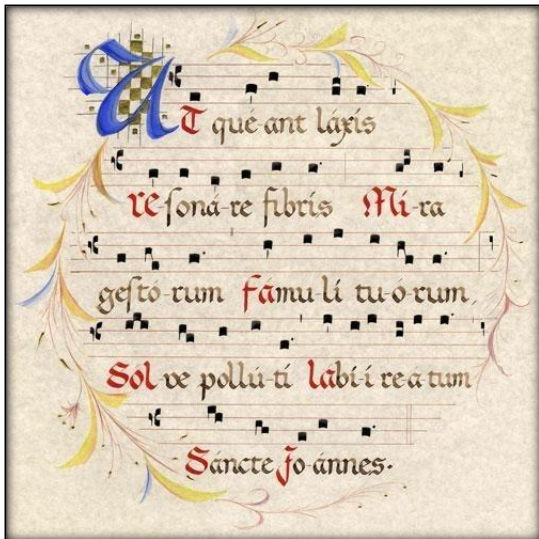 UT qué-ant láxis
re-soná-re fibris Mi-ra
gestó-rum fámu-li tu-ó-rum,
Sól ve pollú-ti lábi-i re-a tum
Sáncte Jo-ánnes.